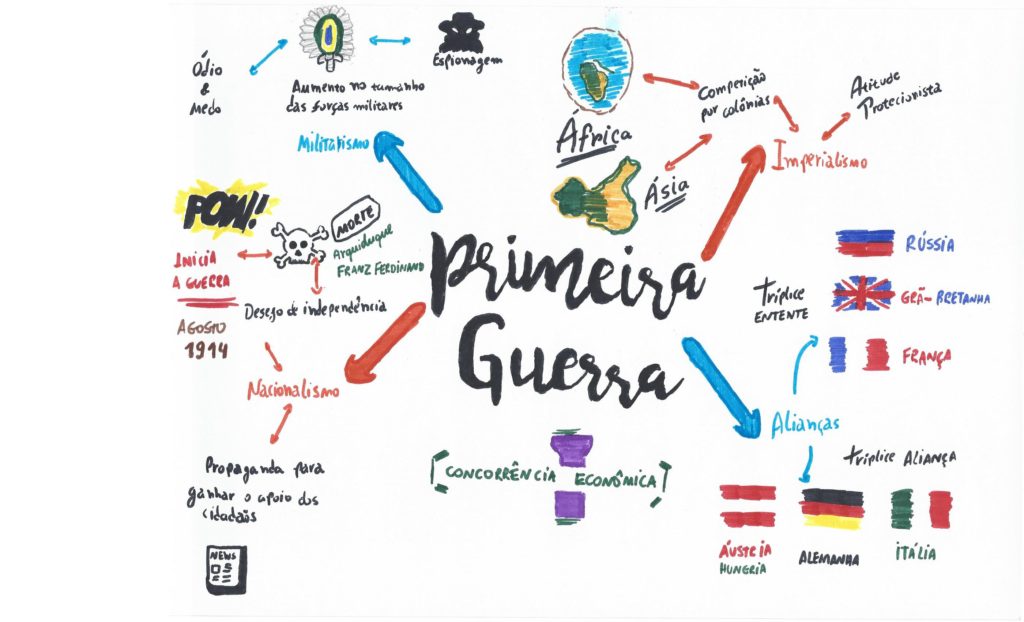 Ódio
&
Medo
Aumento no tamanho
das forças militares
Espionagem
Militarismo
África
Ásia
Competição
por colônias
Atitude
Protecionista
Imperialismo
POW!!
MORTE
Arquiduque
FRANZ FERDINAND
INICIA
A GUERRA
Desejo de independência
AGOSTO
1914
Nacionalismo
Propaganda para
ganhar o apoio dos
cidadais
NEWS
Primeira
Guerra
CONCORRÊNCIA ECONÔMICA
tríplice
ENTENTE
RÚSSIA
GRÃ-BRETANHA
FRANÇA
Alianças
tríplice ALIANÇA
ÁUSTRIA
HUNGRIA
ALEMANHA
ITÁLIA